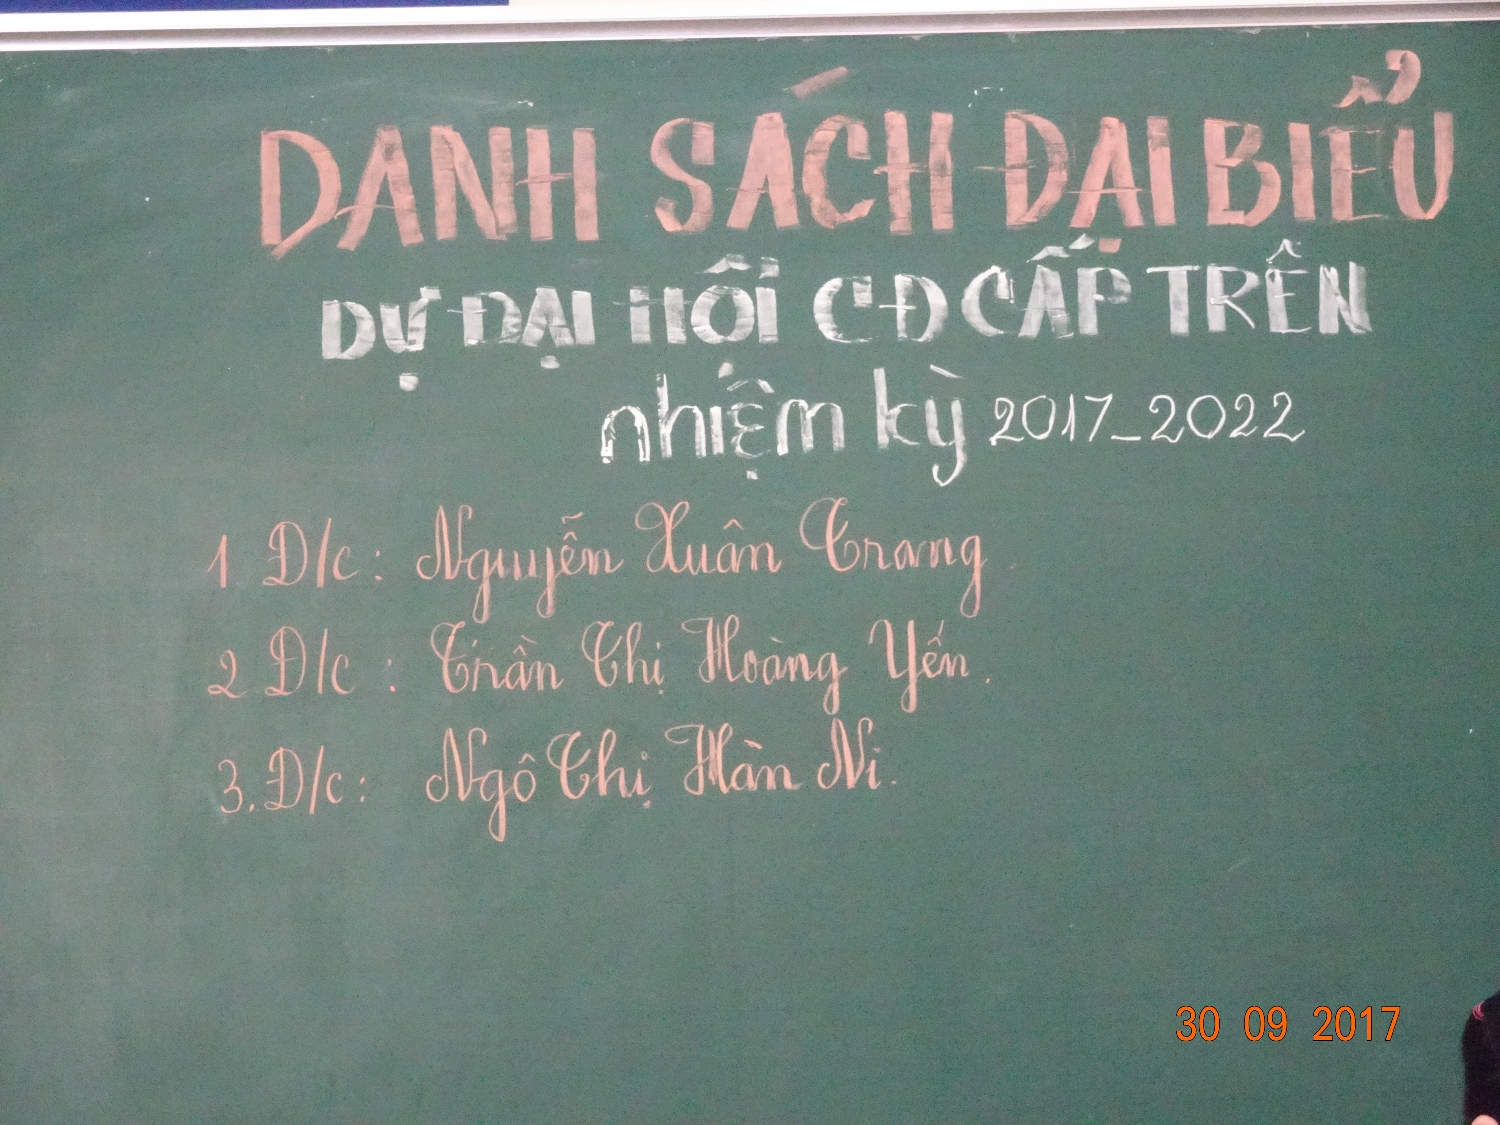 DANH SÁCH ĐẠI BIỂU
DỰ ĐẠI HỘI CĐ CẤP TRÊN
nhiệm kỳ 2017_2022
1. Đ/c: Nguyễn Xuân Trang
2 Đ/c : Trần Thị Hoàng Yến.
3. Đ/c: Ngô Thị Hàn Ni.
30 09 2017